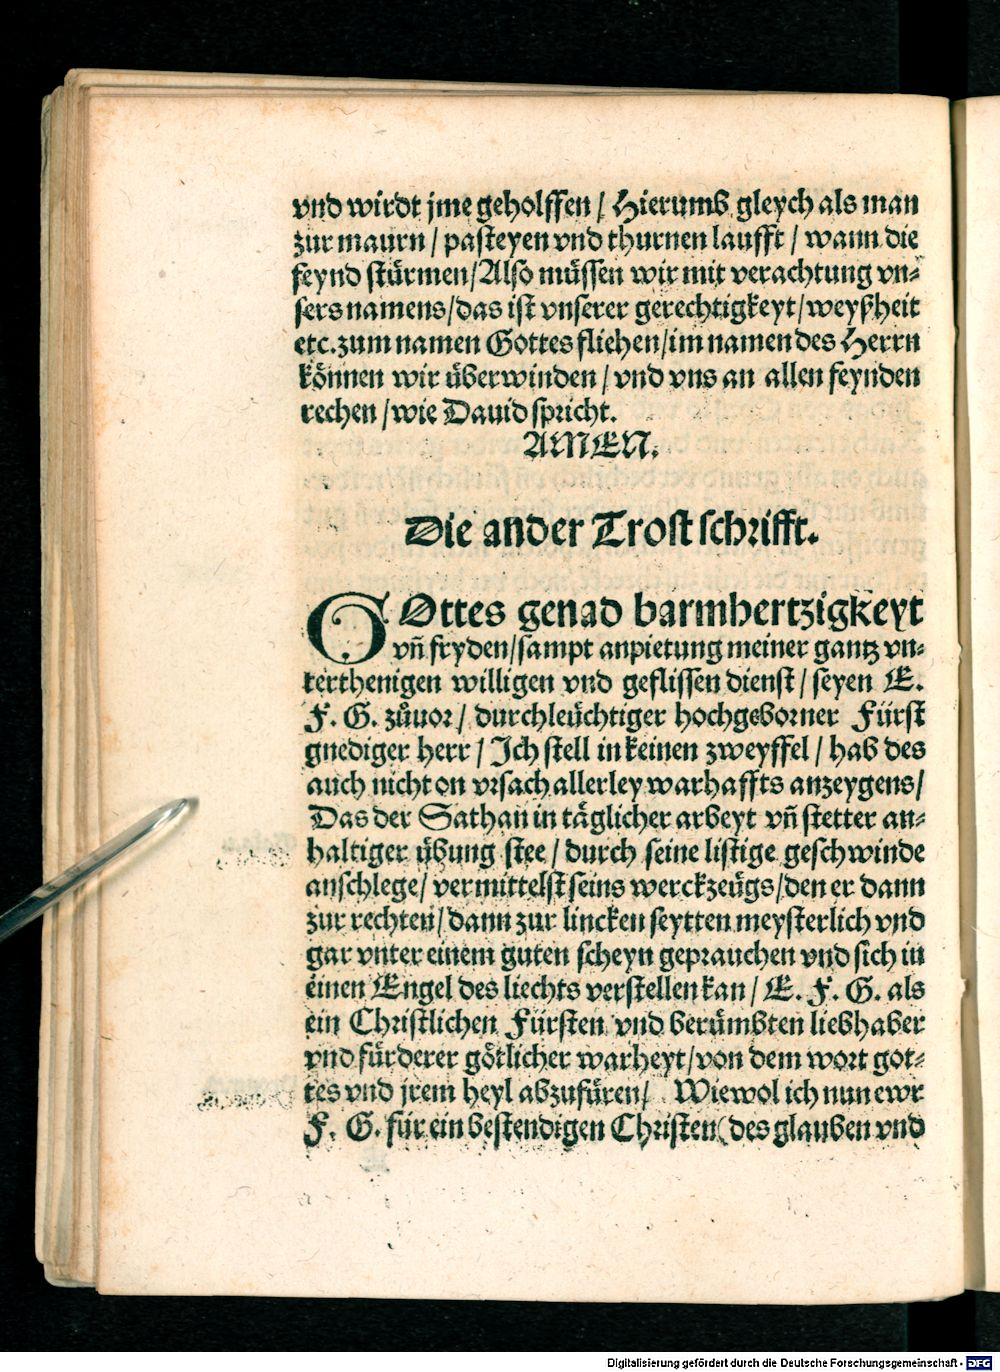 vnd wirdt jme geholffen / Hierumb gleych als man
zur maurn / pasteyen vnd thurnen laufft / wann die
feynd stürmen / Also müssen wir mit verachtung vn⸗
sers namens / das ist vnserer gerechtigkeyt / weyßheit
etc. zum namen Gottes fliehen / im namen des Herrn
können wir überwinden / vnd vns an allen feynden
rechen / wie Dauid spricht.
AMEN.
Die ander Trost schrifft.
GOttes genad barmhertzigkeyt
vñ fryden / sampt anpietung meiner gantz vn⸗
terthenigen willigen vnd geflissen dienst / seyen E.
F. G. zůuor / durchleüchtiger hochgeborner Fürst
gnediger herr / Ich stell in keinen zweyffel / hab des
auch nicht on vrsach allerley warhaffts anzeygens /
Das der Sathan in täglicher arbeyt vñ stetter an⸗
haltiger übung stee / durch seine listige geschwinde
anschlege / vermittelst seins werckzeügs / den er dann
zur rechten / dann zur lincken seytten meysterlich vnd
gar vnter einem guten scheyn geprauchen vnd sich in
einen Engel des liechts verstellen kan / E. F. G. als
ein Christlichen Fürsten vnd berümbten liebhaber
vnd fürderer götlicher warheyt / von dem wort got⸗
tes vnd jrem heyl abzufüren / Wiewol ich nun ewr
F. G. für ein bestendigen Christen (des glauben vnd
Digitalisierung gefördert durch die Deutsche Forschungsgemeinschaft - DFG